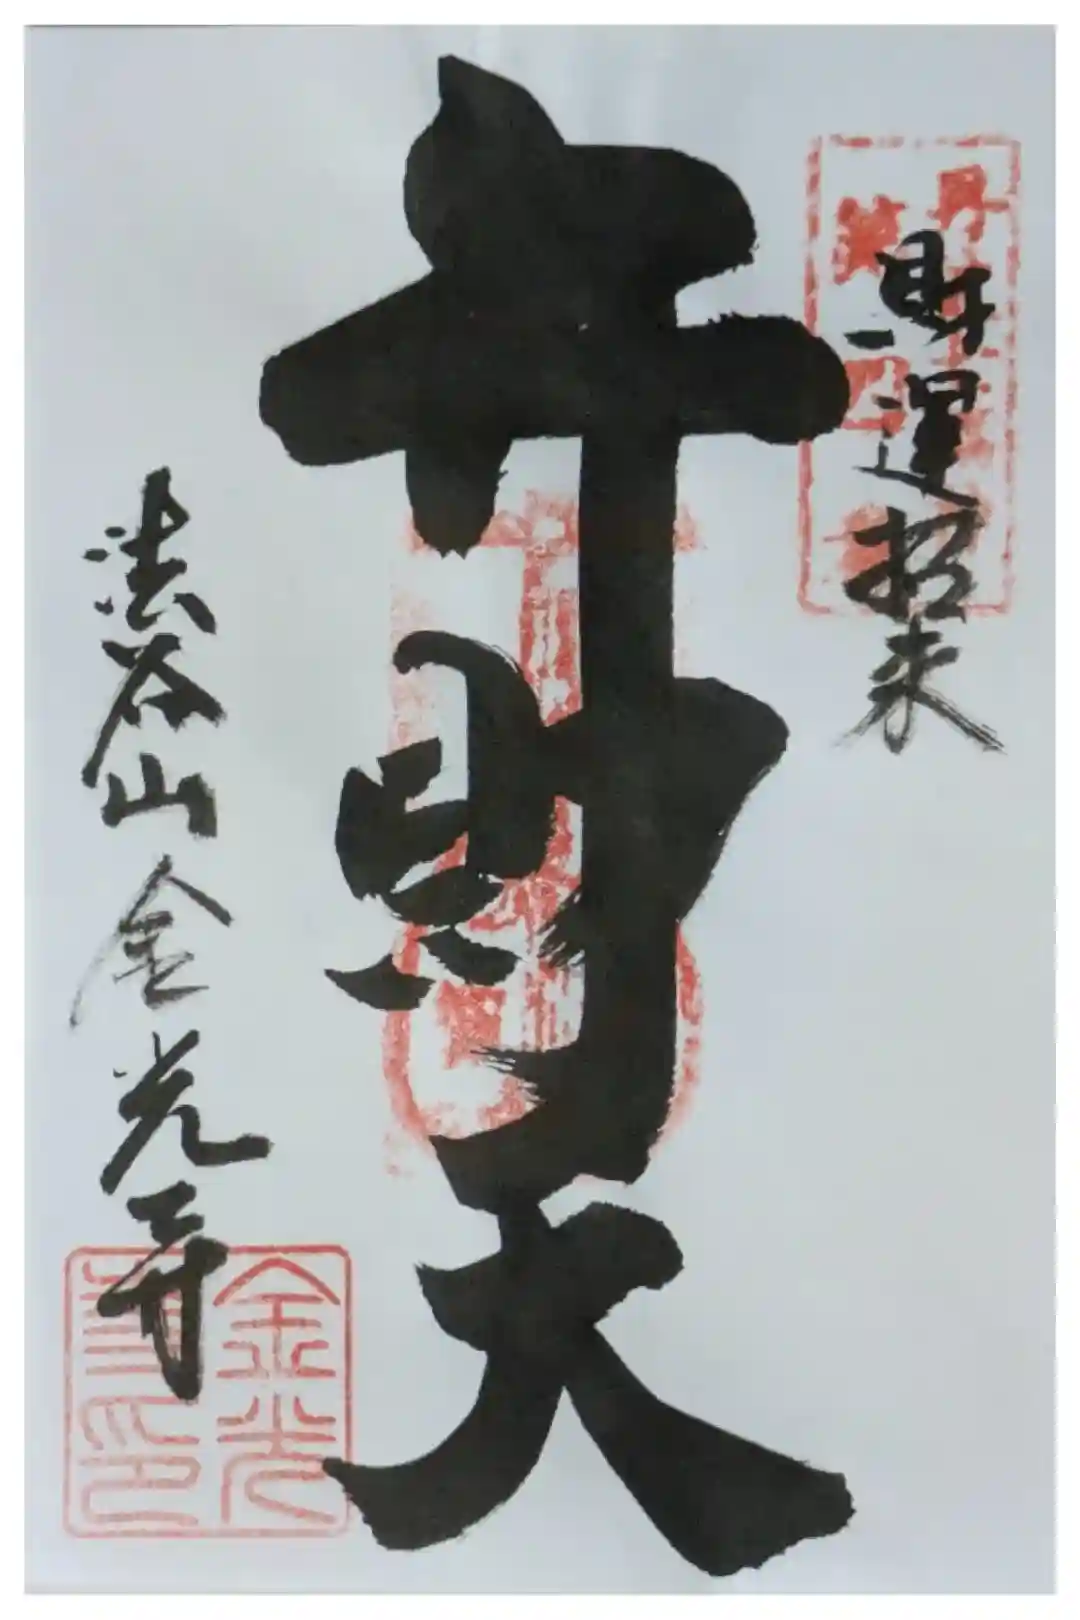 財運招来
弁財天
法谷山金光寺
金光
寺印